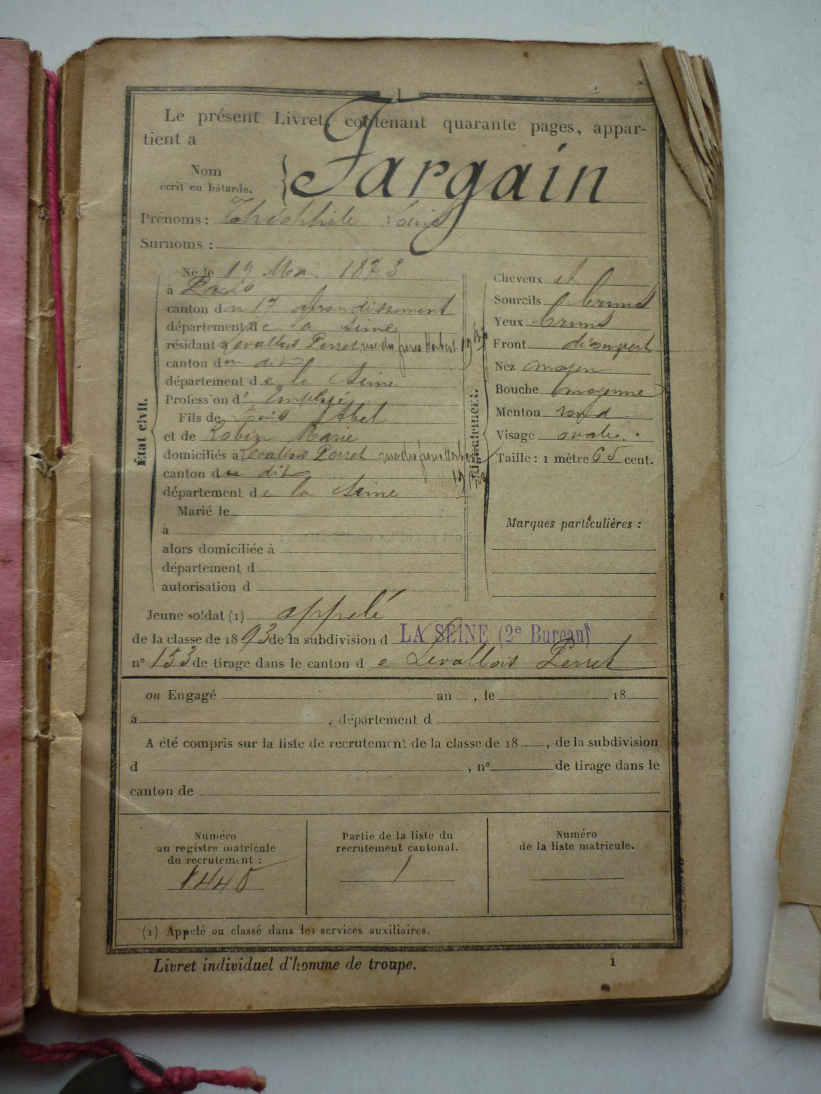 1
Le présent Livret, contenant quarante pages, appar-
tient a
Nom
écrit en bâtarde.
Fargain
Prénoms : Théophile Louis
Surnoms :
Né le 19 Mai 1873
à Paris
canton du 17 arrondissement
département de la Seine
résidant à Levallois Perret rue des frères Herbert
canton du dit
département de la Seine
Profession d'Employé
Fils de Louis Abel
et de Robin Marie
domiciliés à Levallois Perret rue des freres Herbert
canton du dit
département de la Seine
Marié le
à
alors domiciliée à
département d
autorisation d
État civil.
Signalement.
Cheveux et
Sourcils bruns
Yeux bruns
Front découvert
Nez moyen
Bouche moyenne
Menton rond
Visage ovale.
Taille : 1 mètre 65 cent.
Marques particulières :
Jeune soldat (1) appelé
de la classe de 1893 de la subdivision d LA SEINE (2e Bureau)
n° 153 de tirage dans le canton de Levallois Perret
ou Engagé an , le 18
à , département d
A été compris sur la liste de recrutement de la classe de 18 , de la subdivision
d , n° de tirage dans le
canton de
Numéro
au registre matricule
du recrutement :
1440
Partie de la liste du
recrutement cantonal.
1
Numéro
de la liste matricule.
(1) Appelé ou classé dans les services auxiliaires.
Livret individuel d'homme de troupe.
1